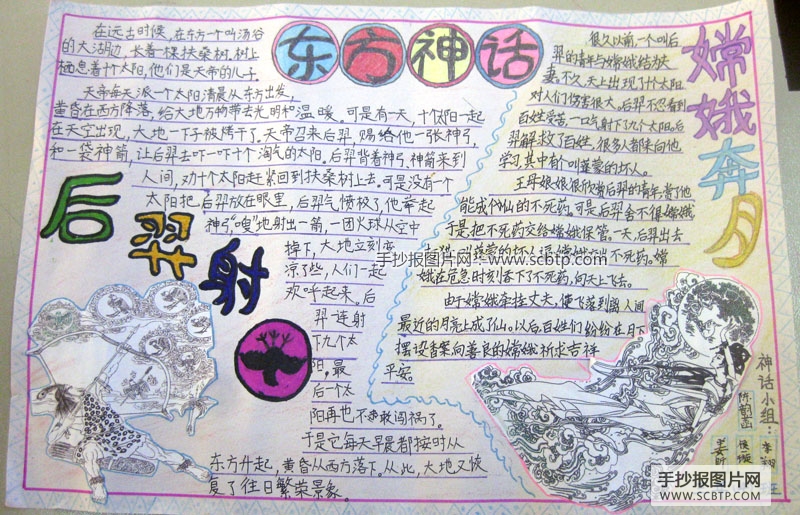 东方神话
后羿射
在远古时候，在东方一个叫汤谷
的大湖边，长着一棵扶桑树，树上
栖息着十个太阳，他们是天帝的儿子。
天帝每天派一个太阳清晨从东方出发，
黄昏在西方降落，给大地万物带去光明和温暖。可是有一天，十个太阳一起
在天空出现，大地一下子被烤干了。天帝召来后羿，赐给他一张神弓，
和一袋神箭，让后羿去吓一吓十个淘气的太阳。后羿背着神弓、神箭来到
人间，劝十个太阳赶紧回到扶桑树上去。可是没有一个
太阳把后羿放在眼里，后羿气愤极了，他举起
神弓"嗖"地射出一箭，一团火球从空中
掉下，大地立刻变
凉了些，人们一起
欢呼起来。后
羿一连射
下九个太
阳。最
后一个太
阳再也不敢闯祸了。
于是它每天早晨都按时从
东方升起，黄昏从西方落下。从此，大地又恢
复了往日繁荣景象。
嫦娥奔月
很久以前，一个叫后
羿的青年与嫦娥结为夫
妻。不久，天上出现了十个太阳
对人们伤害很大。后羿不忍看到
百姓受苦，一口气射下九个太阳。后
羿解救了百姓，很多人都来向他
学习，其中有个叫逢蒙的坏人。
王母娘娘很欣赏后羿的青年，赏了他
能成个仙的不死药。可是后羿舍不得嫦娥
于是把不死药交给嫦娥保管。一天，后羿出去
叫逢蒙的坏人
娥在危急时刻吞下了不死药，向天上飞去。
由于嫦娥牵挂丈夫，便飞落到离人间
最近的月亮上成了仙。以后百姓们纷纷在月下
摆设香案向善良的嫦娥祈求吉祥
平安。
神话小组：
手抄报图片网——www.scbtp.com——
手抄报图片网
WWW.SCBTP.COM